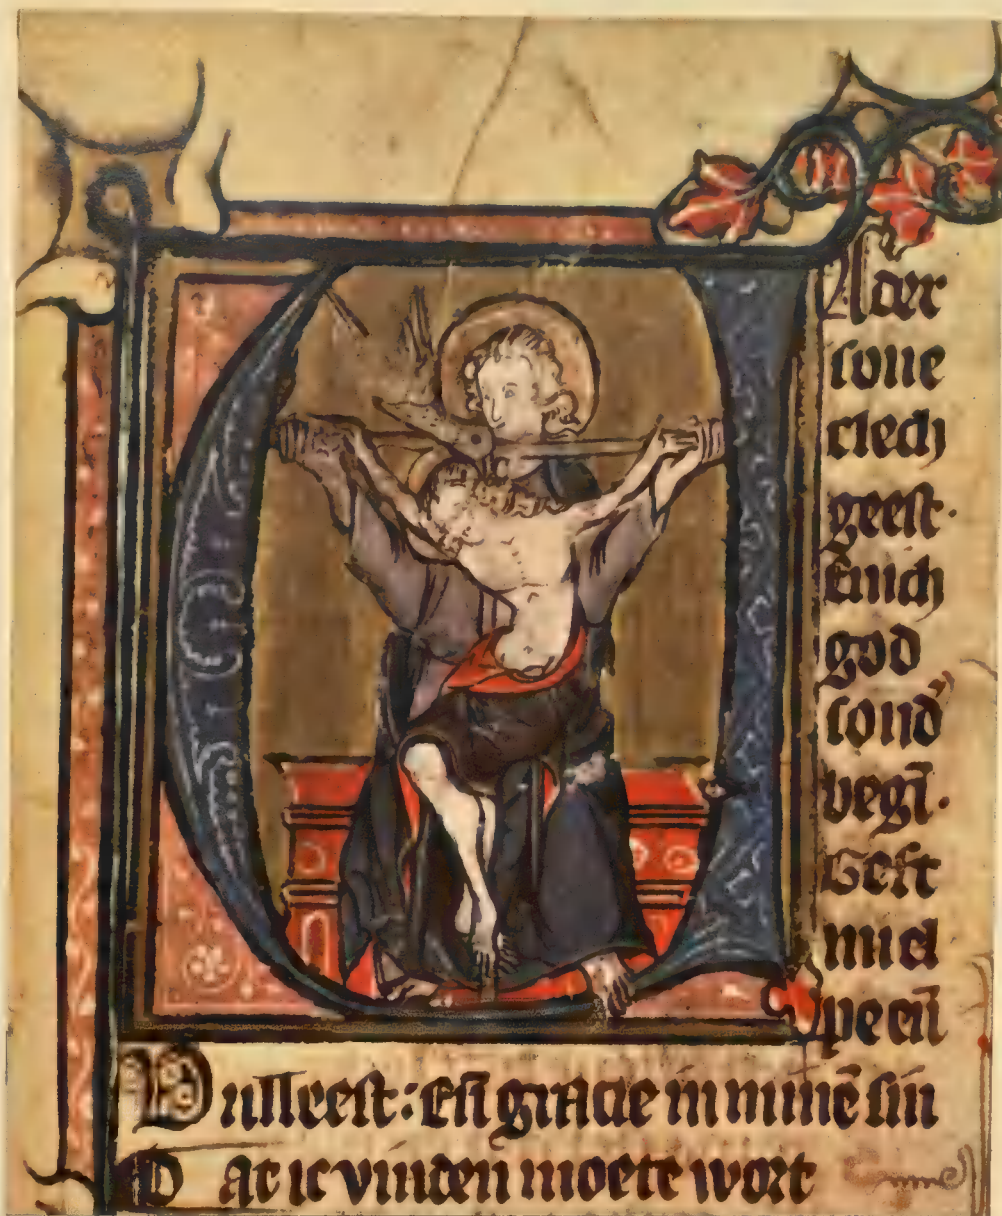 V
Ader
sone
elech
geest·
Enich
god
sond'
begī·
Geft
mi el
pe eñ
Vulleest: Eñ gracie in minē sin
Dat ic vinden moete wort